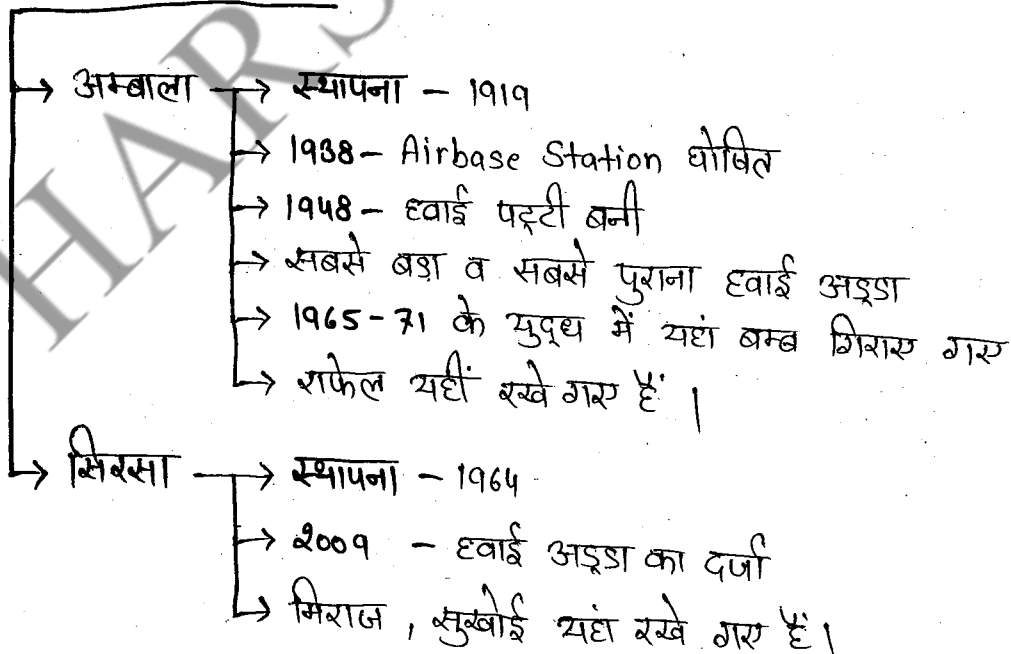 → अम्बाला → स्थापना – 1919
→ 1938 – Airbase Station घोषित
→ 1948 – हवाई पट्टी बनी
→ सबसे बड़ा व सबसे पुराना हवाई अड्डा
→ 1965-71 के युद्ध में यहां बम्ब गिराए गए
→ राफेल यहीं रखे गए हैं ।
→ सिरसा → स्थापना – 1964
→ 2009 – हवाई अड्डा का दर्जा
→ मिराज , सुखोई यहां रखे गए हैं ।
HARS